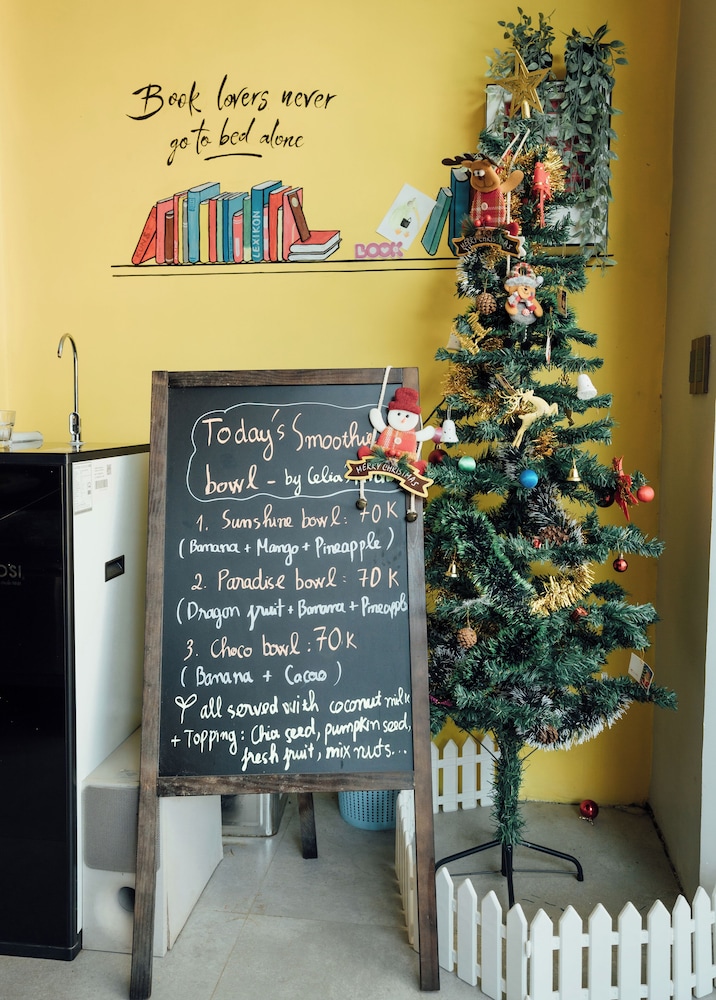 Book lovers never
go to bed alone
LEXIKON
BOOK
MERRY CHRISTMAS
Today's Smoothie
bowl - by Celia
1. Sunshine bowl: 70K
(Banana + Mango + Pineapple)
2. Paradise bowl: 70K
(Dragon fruit + Banana + Pineapple
3. Choco bowl: 70K
(Banana + Cacao)
all served with coconut milk
+ Topping: Chia seed, pumpkin seed,
fresh fruit, mix nuts...